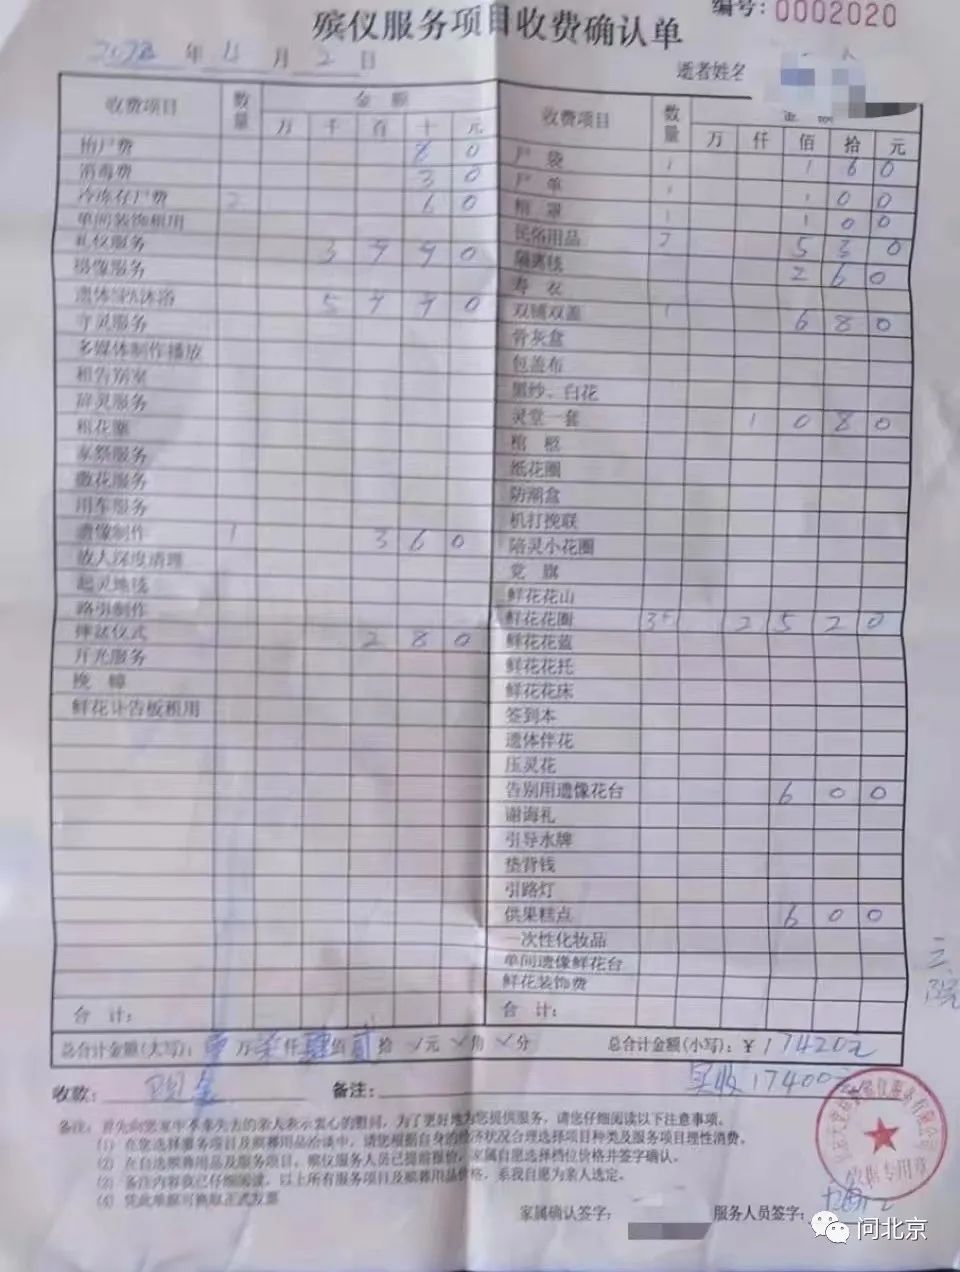 殡仪服务项目收费确认单
编号：0002020
年 11 月 2 日
逝者姓名
收费项目 数量 金额 万 千 百 十 元
收费项目 数量 金额 万 仟 佰 拾 元
抬尸费 8 0
消毒费 3 0
冷冻存尸费 2 6 0
单间装饰租用
礼仪服务 3 9 9 0
摄像服务
遗体SPA沐浴 5 9 9 0
守灵服务
多媒体制作播放
租告别室
辞灵服务
租花圈
家祭服务
撒花服务
用车服务
遗像制作 1 3 6 0
故人深度清理
起灵地毯
路引制作
摔盆仪式 2 8 0
开光服务
挽幛
鲜花讣告板租用
合计：
尸袋 1 1 6 0
尸单 1 1 0 0
棺罩 1 1 0 0
民俗用品 7 5 3 0
隔离毯 2 6 0
寿衣
双铺双盖 1 6 8 0
骨灰盒
包盖布
黑纱、白花
灵堂一套 1 0 8 0
棺柩
纸花圈
防潮盒
机打挽联
陪灵小花圈
党旗
鲜花花山
鲜花花圈 3 2 5 2 0
鲜花花蓝
鲜花花托
鲜花花床
签到本
遗体伴花
压灵花
告别用遗像花台 6 0 0
谢海礼
引导水牌
垫背钱
引路灯
供果糕点 6 0 0
一次性化妆品
单间遗像鲜花台
鲜花装饰费
合计：
三院
总合计金额(大写)： 万 仟肆佰贰拾 元 角 分
总合计金额(小写)：￥17420元
实收17400元
收款： 现金
备注：
备注：首先向您家中不幸失去的亲人表示衷心的慰问，为了更好地为您提供服务，请您仔细阅读以下注意事项。
(1) 在您选择服务项目及殡葬用品洽谈中，请您根据自身的经济状况合理选择项目种类及服务项目理性消费。
(2) 在自选殡葬用品及服务项目，殡仪服务人员已提前报价，家属自愿选择档位价格并签字确认。
(3) 备注内容我已仔细阅读，以上所有服务项目及殡葬用品价格，系我自愿为亲人选定。
(4) 凭此单据可换取正式发票
家属确认签字：
服务人员签字：
收据专用章
问北京